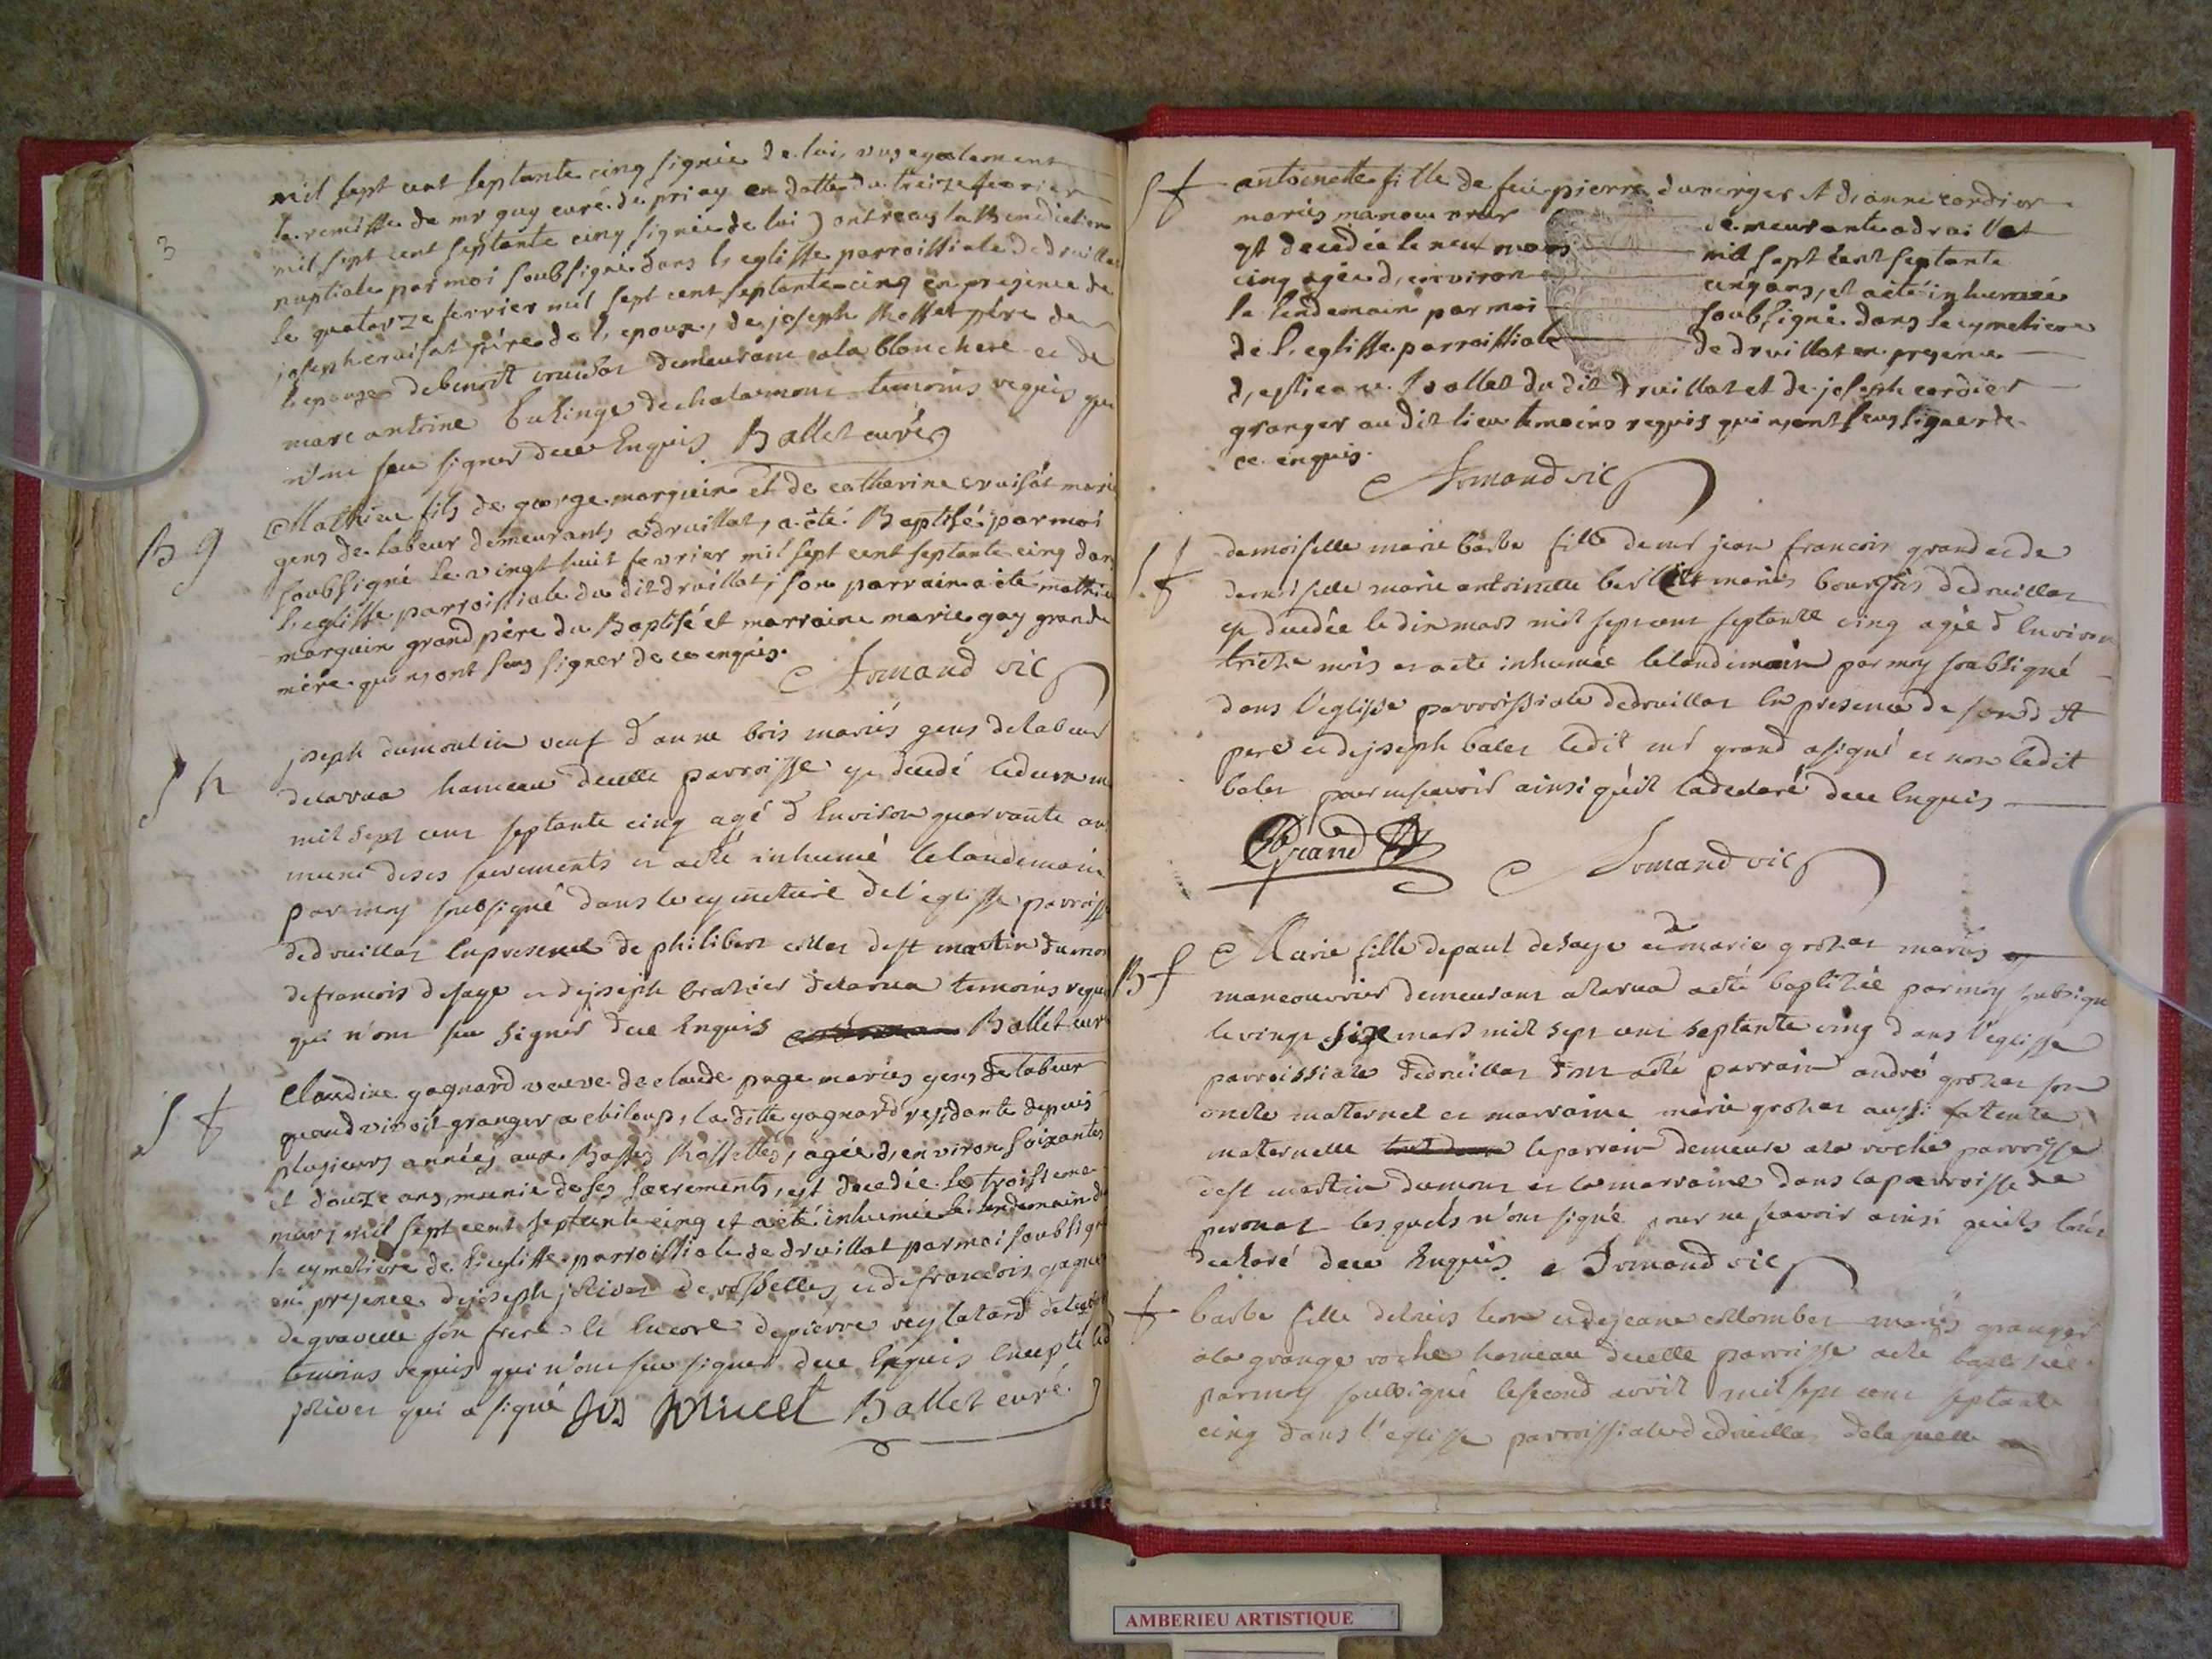 3
mil sept cent septante cinq signée de lui, vus egalement
la remisse de mr guy curé de priay en datte du treize fevrier
mil sept cent septante cinq signée de lui) ont reçus la Benediction
nuptiale par moi soubsigné dans l'eglisse parroissiale de druillat
le quatorze fevrier mil sept cent septante-cinq en presence de
joseph cruisat père de l'epoux, de joseph Rosset père de
l'epouze de benoit cruisat demeurant a la blanchere et de
marc antoine de chalamont temoins requis qui
n'ont seu signer de ce Enquis Ballet curé
B g
Mathieu fils de george marguin et de catherine cruisat marié
gens de labeur demeurants a druillat, a été Baptisé par moi
soubsigné le vingt huit fevrier mil sept cent septante cinq dan
l'eglisse parroissiale du dit druillat, son parrain a été mathie
marguin grand père du Baptisé et marraine marie gay grande
mère qui n'ont seus signer de ce enquis.
Armand vic
S h
joseph dumoulin veuf d'anne bois mariés gens de labeur
de larua hameau decelle parroisse est decedé le deux m
mil sept cent septante cinq agé d'Environ quarrante an
muni de ses sacrements et a eté inhumé le landemain
par moy soubsigné dans le cymetiere de l'eglisse parroiss
de druillat En presence de philibert collet de st martin dumon
de francois desaye et de joseph brazier de larua temoins requi
qui n'ont seu signer de ce Enquis Ballet cur
S f
Claudine gagnard veuve de claude page mariés gens de labeur
quand vivoit granger a chiloup, la ditte gagnard residante depuis
plusieurs années aux Basses Rossettes, agée d'environ soixantes
et douze ans, munie de ses sacrements, est decedée le troisieme
mars mil sept cent septante cinq et a été inhumée le lendemain d
le cymetiere de l'eglisse parroissiale de druillat par moi soubsign
en presence de joseph jolivet de rossettes et de francois gagn
de gravelle son frere et Encore de pierre
temoins requis qui n'ont seu signer de ce Enquis Excepté led
jolivet qui a signé Jos Jolivet Ballet curé
S f
antoinette fille de feu pierre duverger et d'anne cordier
mariés manouvrier demeurante a druillat
est decedée le neuf mars mil sept cent septante
cinq agée d'environ cinq ans, et a été inhumée
le lendemain par moi soubsigné dans le cymetiere
de l'eglisse parroissiale de druillat en presence
d'estienne Ballet du dit druillat et de joseph cordier
granger au dit lieu temoins requis qui n'ont seus signer de
ce enquis.
Armand vic
S f
demoiselle marie barbe fille de mr jean francois grand et de
demoiselle marie antoinette mariés bourgois de druillat
est decedée le dix mars mil sept cent septante cinq agée d'Environ
treize mois et a eté inhumée le landemain par moy soubsigné
dans l'eglisse parroissiale de druillat En presence de sond it
pere et de joseph balet ledit mr grand a signé et non ledit
balet pour ne scavoir ainsi qu'il l'a declaré de ce Enquis
Grand
Armand vic
B f
Marie fille de paul desaye et de marie grozat mariés
manouvrier demeurant a larua a eté baptizée par moy soubsigné
le vingt sixe mars mil sept cent septante cinq dans l'eglisse
parroissiale de druillat d'ont a eté parrain andré grozat son
oncle maternel et marraine marie grozat aussi sa tente
maternelle le parrain demeure a la roche parroisse
de st martin dumont et la marraine dans la parroisse de
peronas lesquels n'ont signé pour ne scavoir ainsi qu'ils l'ont
declaré de ce Enquis Armand vic
f
barbe fille de et de jeane collombet mariés granger
a la grange roche hameau decelle parroisse a eté baptisée
par moy soubsigné le second avril mil sept cent septante
cinq dans l'eglisse parroissiale de druillat de laquelle
AMBERIEU ARTISTIQUE